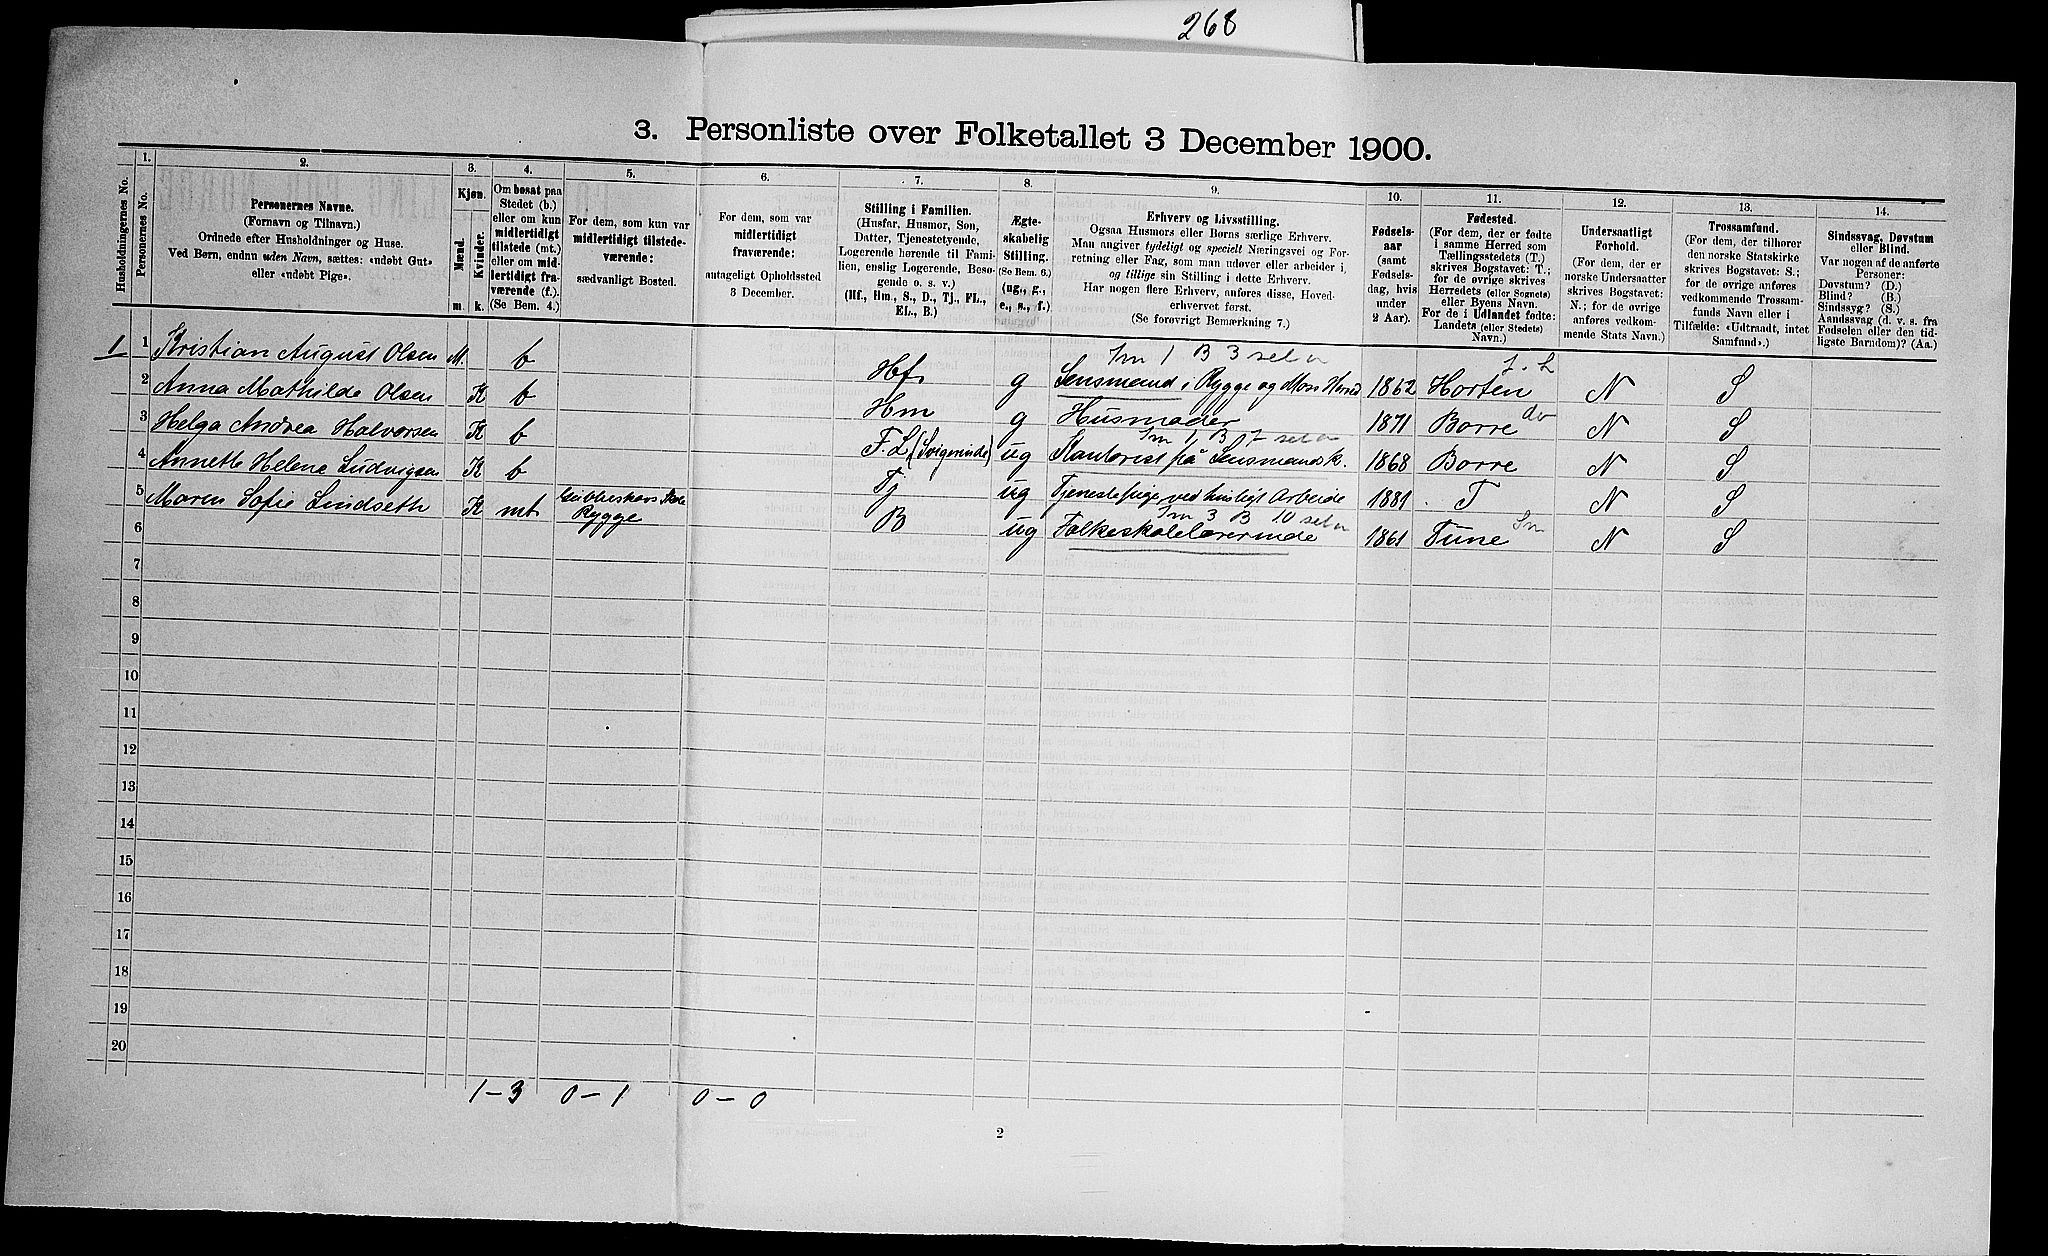 268
3. Personliste over Folketallet 3 December 1900.
Husholdningernes No.
1.
Personernes No.
2.
Personernes Navne.
(Fornavn og Tilnavn.)
Ordnede efter Husholdninger og Huse.
Ved Børn, endnu uden Navn, sættes: «udøbt Gut»
eller «udøbt Pige».
3.
Kjøn.
Mænd.
Kvinder.
m. k.
4.
Om bosat paa
Stedet (b.)
eller om kun
midlertidigt
tilstede (mt.)
eller om mid-
lertidigt fra-
værende (f.).
(Se Bem. 4.)
5.
For dem, som kun var
midlertidigt tilstede-
værende:
sædvanligt Bosted.
6.
For dem, som var
midlertidigt
fraværende:
antageligt Opholdssted
3 December.
7.
Stilling i Familien.
(Husfar, Husmor, Søn,
Datter, Tjenestetyende,
Logerende hørende til Fami-
lien, enslig Logerende, Besø-
gende o. s. v.)
(Hf., Hm., S., D., Tj., FL.,
EL., B.)
8.
Ægte-
skabelig
Stilling.
(Se Bem. 6.)
(ug., g.,
e., s., f.)
9.
Erhverv og Livsstilling.
Ogsaa Husmors eller Børns særlige Erhverv.
Man angiver tydeligt og specielt Næringsvei og For-
retning eller Fag, som man udøver eller arbeider i,
og tillige sin Stilling i dette Erhverv.
Har nogen flere Erhverv, anføres disse, Hoved-
erhvervet først.
(Se forøvrigt Bemærkning 7.)
10.
Fødsels-
aar
(samt
Fødsels-
dag, hvis
under
2 Aar).
11.
Fødested.
(For dem, der er fødte
i samme Herred som
Tællingsstedets (T.)
skrives Bogstavet: T.;
for de øvrige skrives
Herredets (eller Sognets)
eller Byens Navn.
For de i Udlandet fødte:
Landets (eller Stedets)
Navn.)
12.
Undersaatligt
Forhold.
(For dem, der er
norske Undersaatter
skrives Bogstavet:
N.; for de øvrige
anføres vedkom-
mende Stats Navn.)
13.
Trossamfund.
(For dem, der tilhører
den norske Statskirke
skrives Bogstavet: S.;
for de øvrige anføres
vedkommende Trossam-
funds Navn eller i
Tilfælde: «Udtraadt, intet
Samfund».)
14.
Sindssvag, Døvstum
eller Blind.
Var nogen af de anførte
Personer:
Døvstum? (D.)
Blind? (B.)
Sindssyg? (S.)
Aandssvag (d. v. s. fra
Fødselen eller den tid-
ligste Barndom)? (Aa.)
1 1 Kristian August Olsen M. b Hf. g Lensmand i Rygge og Moss Herred 1862 Horten N S
2 Anna Mathilde Olsen K b Hm g Husmoder 1871 Borre N S
3 Helga Andrea Halvorsen K b F. L (Svigerinde) ug Kontorist på Lensmandsk. 1868 Borre N S
4 Annette Helene Ludvigsen K b Tj ug Tjenestepige ved husligt Arbeide 1881 T N S
5 Maren Sofie Lindseth K mt Rygge B ug Folkeskolelærerinde 1861 Tune N S
6
7
8
9
10
11
12
13
14
15
16
17
18
19
20
1-3 0-1 0-0
2